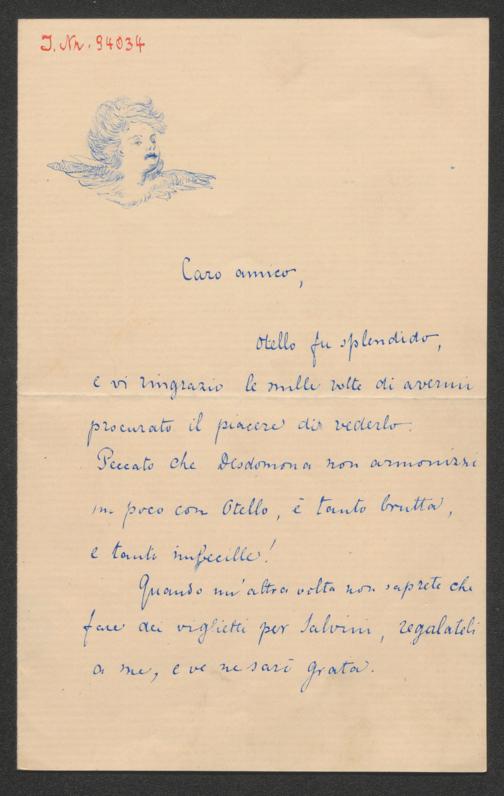 J. Nr. 94034
Caro amico,
Otello fu splendido,
e vi ringrazio le mille volte di avermi
procurato il piacere di vederlo.
Peccato che Desdomona non armonizzi
un poco con Otello, è tanto brutta,
e tanto imbecille!
Quando un'altra volta non saprete che
fare dei viglietti per Salvini, regalateli
a me, e ve ne sarò grata.